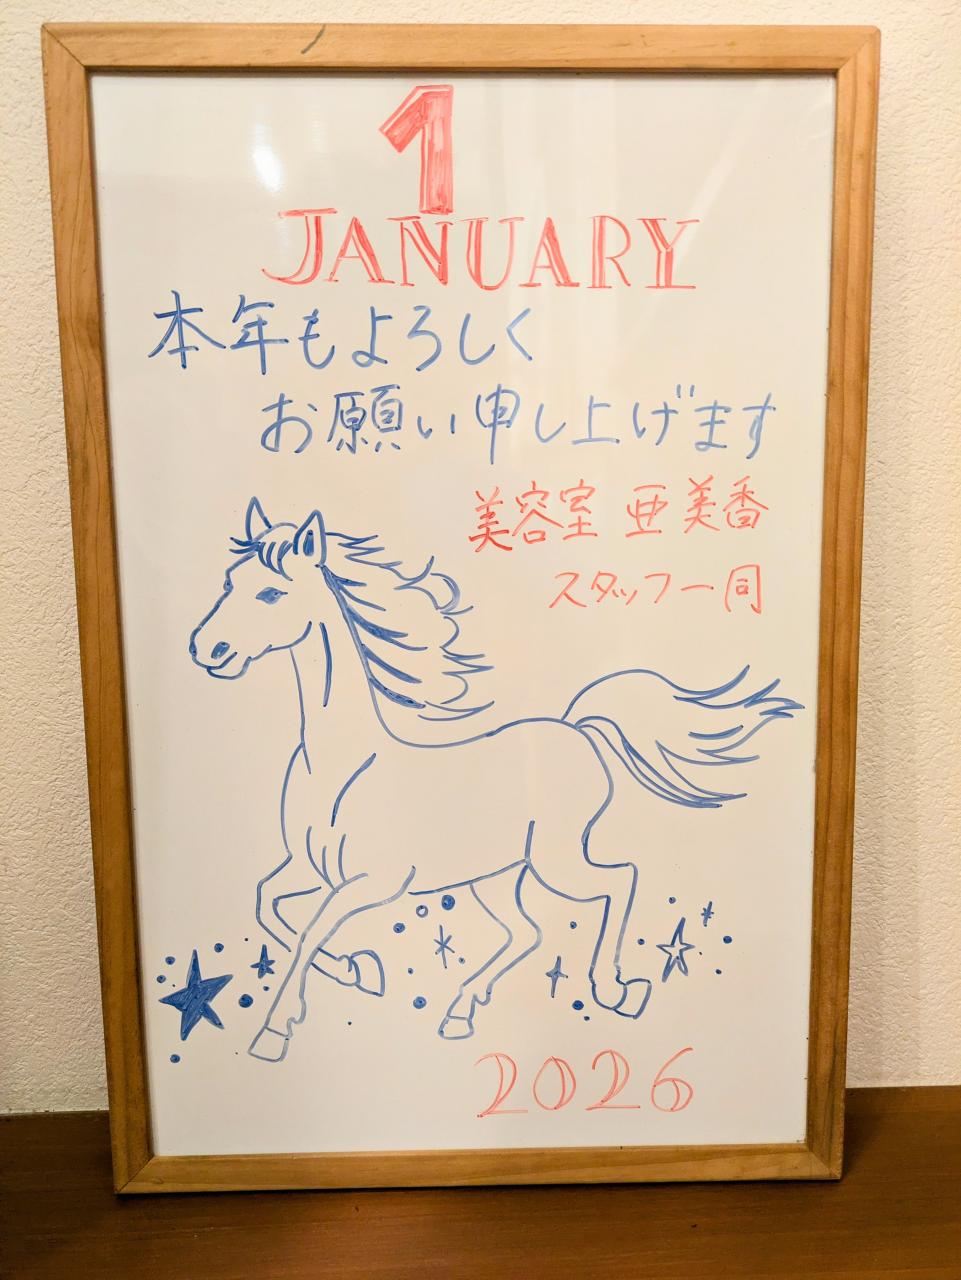 1
JANUARY
本年もよろしく
お願い申し上げます
美容室 亜美香
スタッフ一同
2026